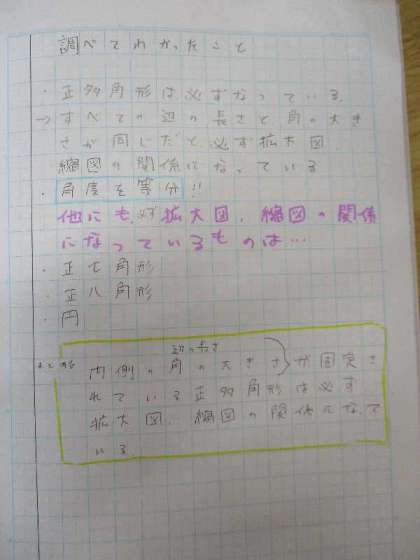 調べてわかったこと
・正多角形は必ずなっている。
→すべての辺の長さと角の大き
さが同じだと必ず拡大図、
縮図の関係になっている
・角度を等分!!
他にも、必ず拡大図、縮図の関係
になっているものは…
・正七角形
・正八角形
・円
まとめ
辺の長さ
内側の角の大きさが固定さ
れている正多角形は必ず
拡大図、縮図の関係になって
いる。